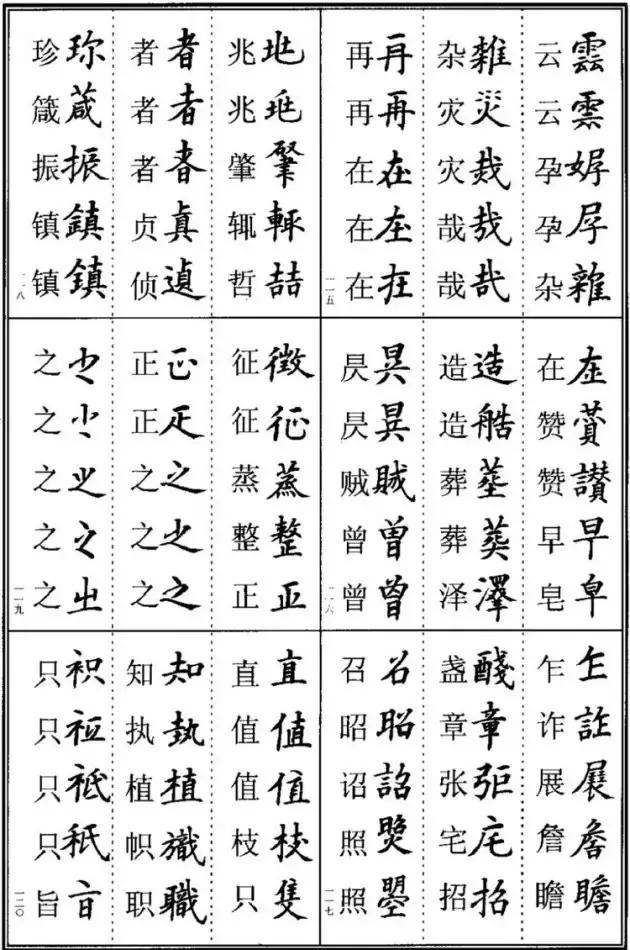 云 雲 云 雲 孕 孕 杂 雜
杂 雜 灾 災 灾 哉 哉 哉
再 再 再 再 在 在 在 在 在 在
一一五
在 在 赞 赞 讃 早 早 皂 皁
造 造 造 艁 葬 葬 葬 泽 澤
昃 昃 贼 賊 曾 曾 曾 曽
一一六
乍 乍 诈 詐 展 展 詹 詹 瞻 瞻
盏 醆 章 章 张 宅 宅 招 招
召 召 昭 昭 诏 詔 照 照 曌
一一七
兆 兆 肇 肇 辄 輒 哲 喆
者 者 者 者 者 贞 真 侦 遉
珍 珎 箴 葴 振 振 镇 鎮 镇 鎮
一一八
征 徵 征 征 蒸 蒸 整 整 正 正
正 正 正 之 之 之 之 之 之
之 之 之 之 之 㞢
一一九
直 直 值 值 值 值 枝 枝 只 隻
知 知 执 執 植 植 帜 职 職
只 只 只 只 秖 旨
一二〇